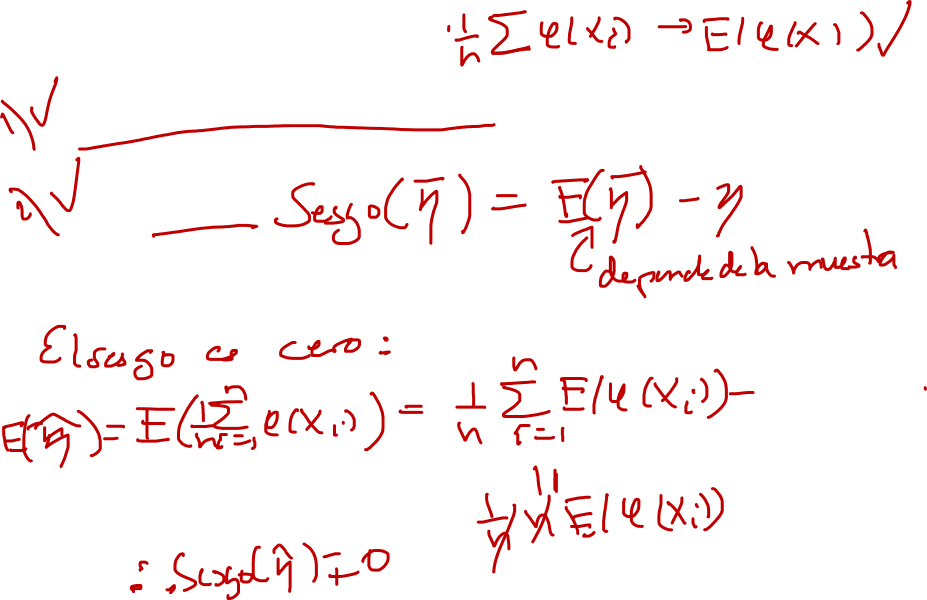 1/n ∑ φ(Xi) → E(φ(X)) ✓
1) ✓
2) ✓
Sesgo(η̄) = E(η̄) - η
depende de la muestra
El sesgo es cero:
E(η̂) = E(1/n ∑_{i=1}^{n} φ(Xi)) = 1/n ∑_{i=1}^{n} E(φ(Xi)) -
11
1/n n E(φ(Xi))
∴ Sesgo(η̂) = 0